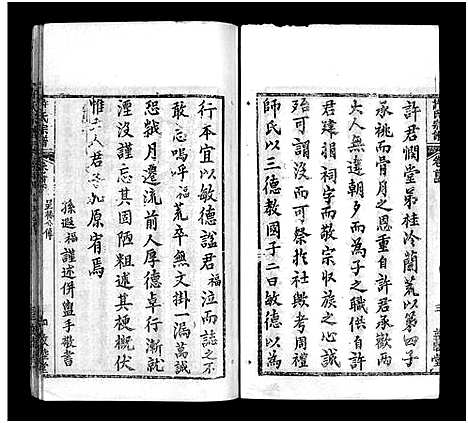 許君憫堂第桂冷蘭荒以第四子
承祧而骨月之恩重自許君承歡兩
大人無違朝夕故為子之職供自許
君建捐祠宇而敬宗収族之心誠
殆可謂沒而可祭於社與考周禮
師氏以三德教國子二曰敏德以為
行本宜以敏德謚君福泣而誌之不
敢忘嗚呼福荒卒無文掛一漏萬誠
恐歲月遷流前人厚德卓行漸就
湮沒忘其固陋粗述其梗概伏
惟大人君加原宥焉
孫遐福謹述併盥手敬書